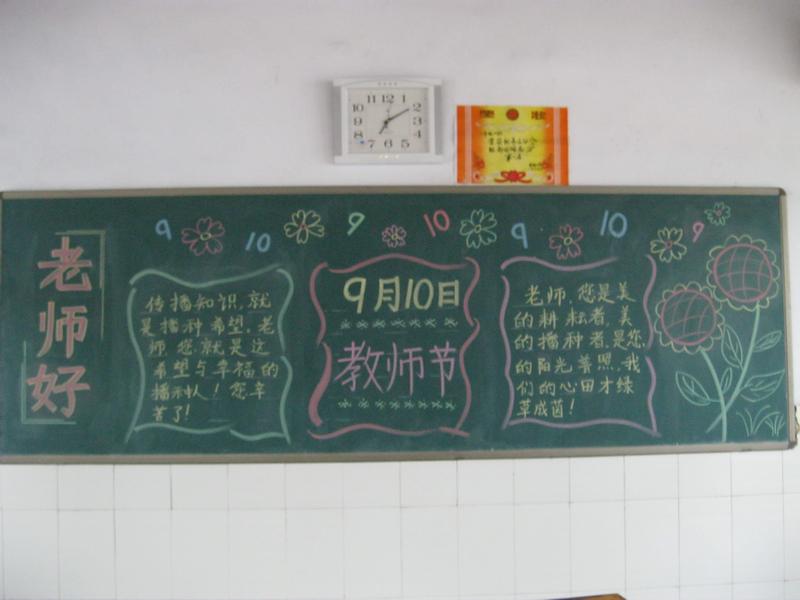 11 12 1
10 2
9 3
8 4
7 6 5
9 10 9 10 9 10 9
老师好
传播知识,就
是播种希望。老
师,您就是这
希望与幸福的
播种人！您辛
苦了!
9月10日
教师节
老师,您是美
的耕耘者,美
的播种者,是您
的阳光普照,我
们的心田才绿
草成茵!